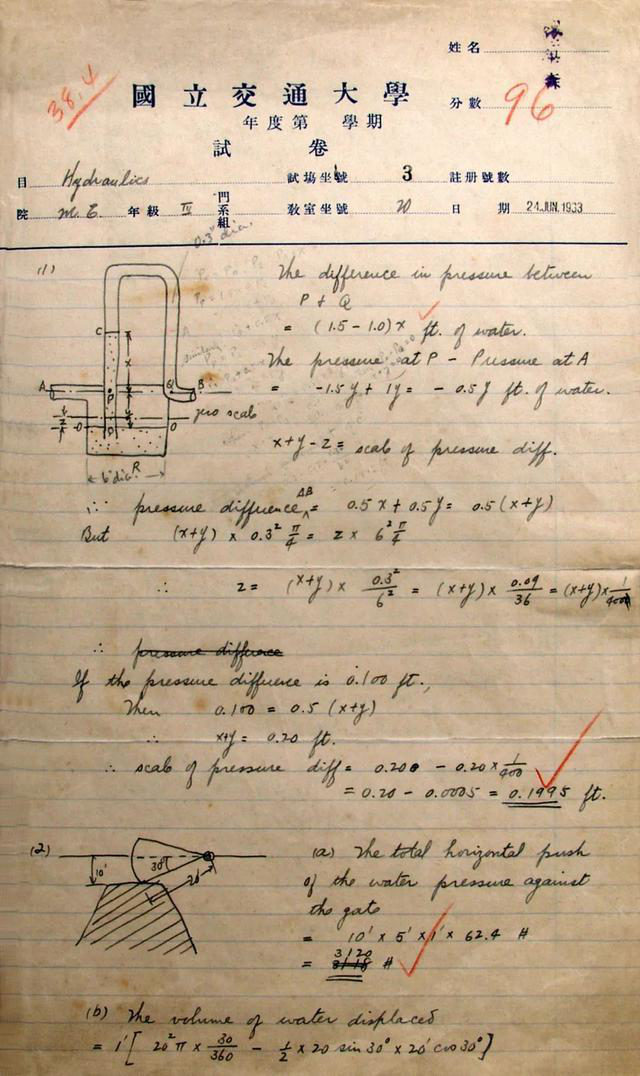 姓名 森
38.4
國立交通大學
分數 96
年度第 學期
試 卷
目 Hydraulics 試場坐號 3 註册號數
院 M.E. 年級 IV 門系組 教室坐號 20 日期 24 JUN. 1933
0.3" dia.
(1) The difference in pressure between
P & Q
= (1.5 - 1.0) x ft. of water.
The pressure at P - Pressure at A
= -1.5 y + 1y = - 0.5 y ft. of water.
C
x
A P Q B
y
zero scale
z O O
R
6" dia.
x+y-z = scale of pressure diff.
∴ pressure difference AB = 0.5 x + 0.5 y = 0.5 (x+y)
But (x+y) x 0.3² π/4 = z x 6² π/4
∴ z = (x+y) x 0.3²/6² = (x+y) x 0.09/36 = (x+y) x 1/400
∴ pressure difference
If the pressure difference is 0.100 ft.,
Then 0.100 = 0.5 (x+y)
∴ x+y = 0.20 ft.
∴ scale of pressure diff = 0.200 - 0.20 x 1/400
= 0.20 - 0.0005 = 0.1995 ft.
(2)
10'
30°
20'
(a) The total horizontal push
of the water pressure against
the gate
= 10' x 5' x 1' x 62.4 #
= 3120 #
(b) The volume of water displaced
= 1' [ 20² π x 30/360 - 1/2 x 20 sin 30° x 20' cos 30° ]